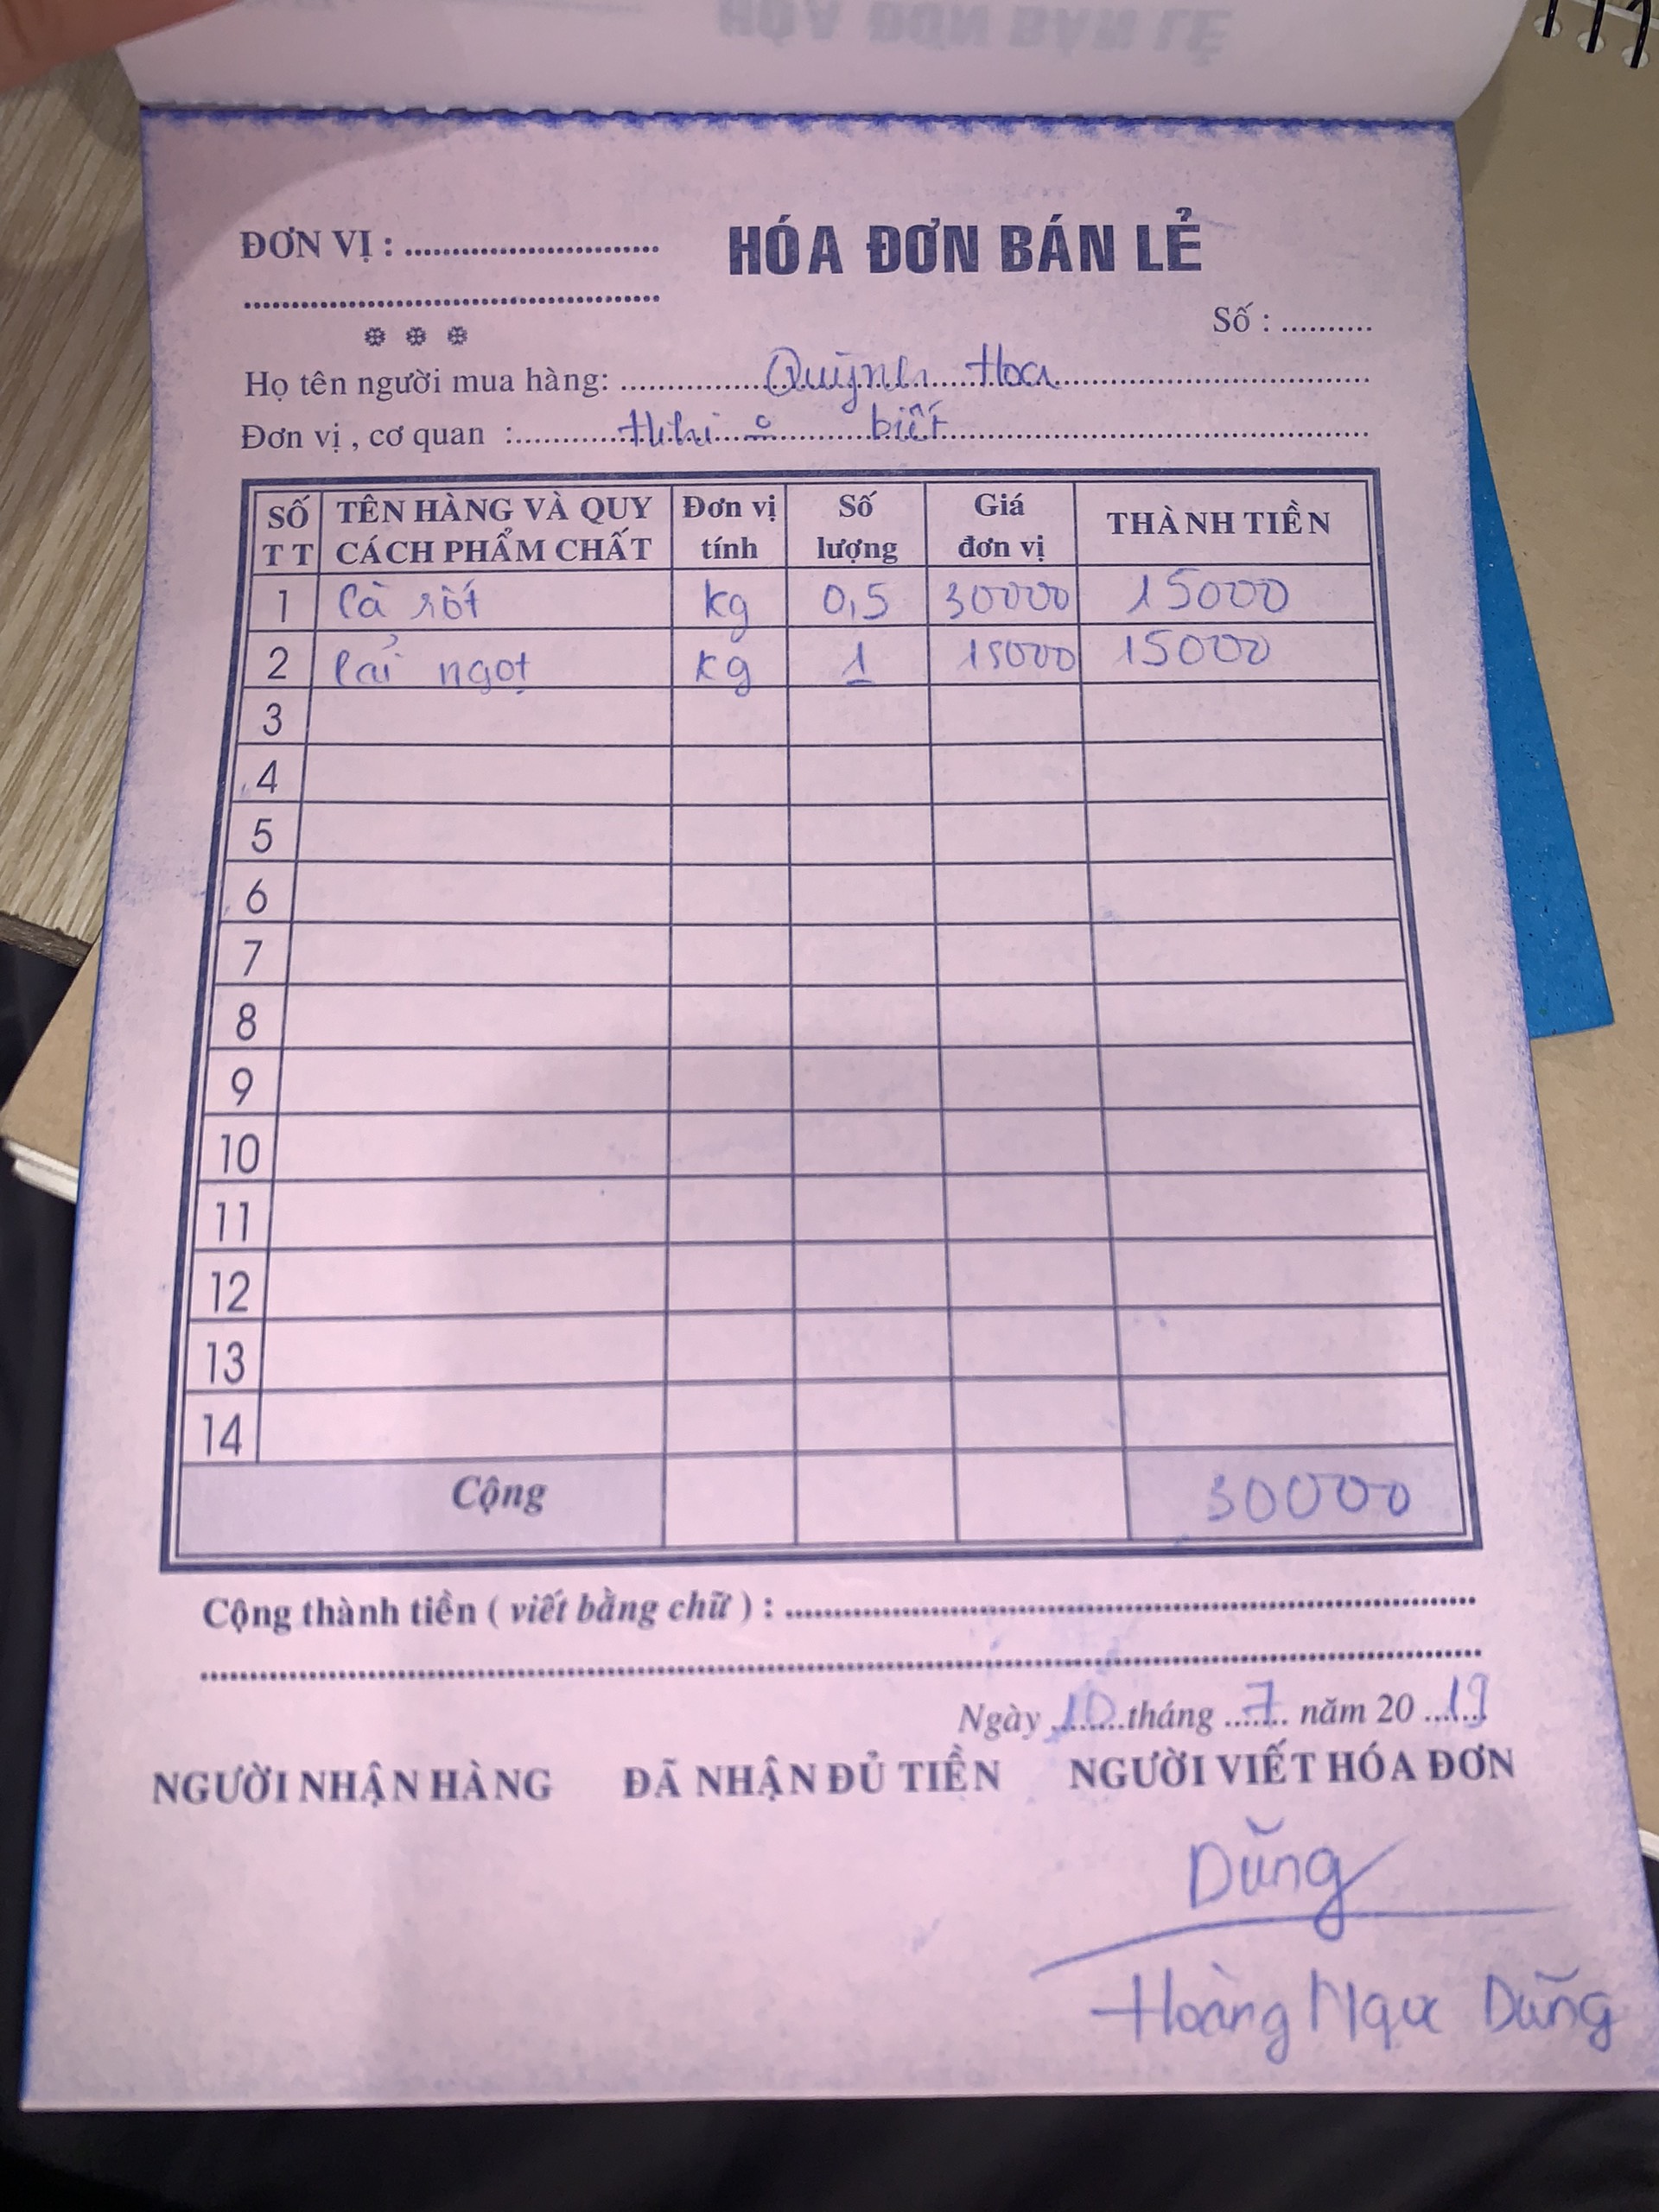 HÓA ĐƠN BÁN LẺ
ĐƠN VỊ : ............................ HÓA ĐƠN BÁN LẺ
Số : ..........
Họ tên người mua hàng: Quỳnh Hoa
Đơn vị , cơ quan : biết
SỐ TT TÊN HÀNG VÀ QUY CÁCH PHẨM CHẤT Đơn vị tính Số lượng Giá đơn vị THÀNH TIỀN
1 Cà rốt kg 0,5 30000 15000
2 Cải ngọt kg 1 15000 15000
3
4
5
6
7
8
9
10
11
12
13
14
Cộng 30000
Cộng thành tiền ( viết bằng chữ ) :
Ngày 10 tháng 7 năm 20 19
NGƯỜI NHẬN HÀNG ĐÃ NHẬN ĐỦ TIỀN NGƯỜI VIẾT HÓA ĐƠN
Dũng
Hoàng Dũng